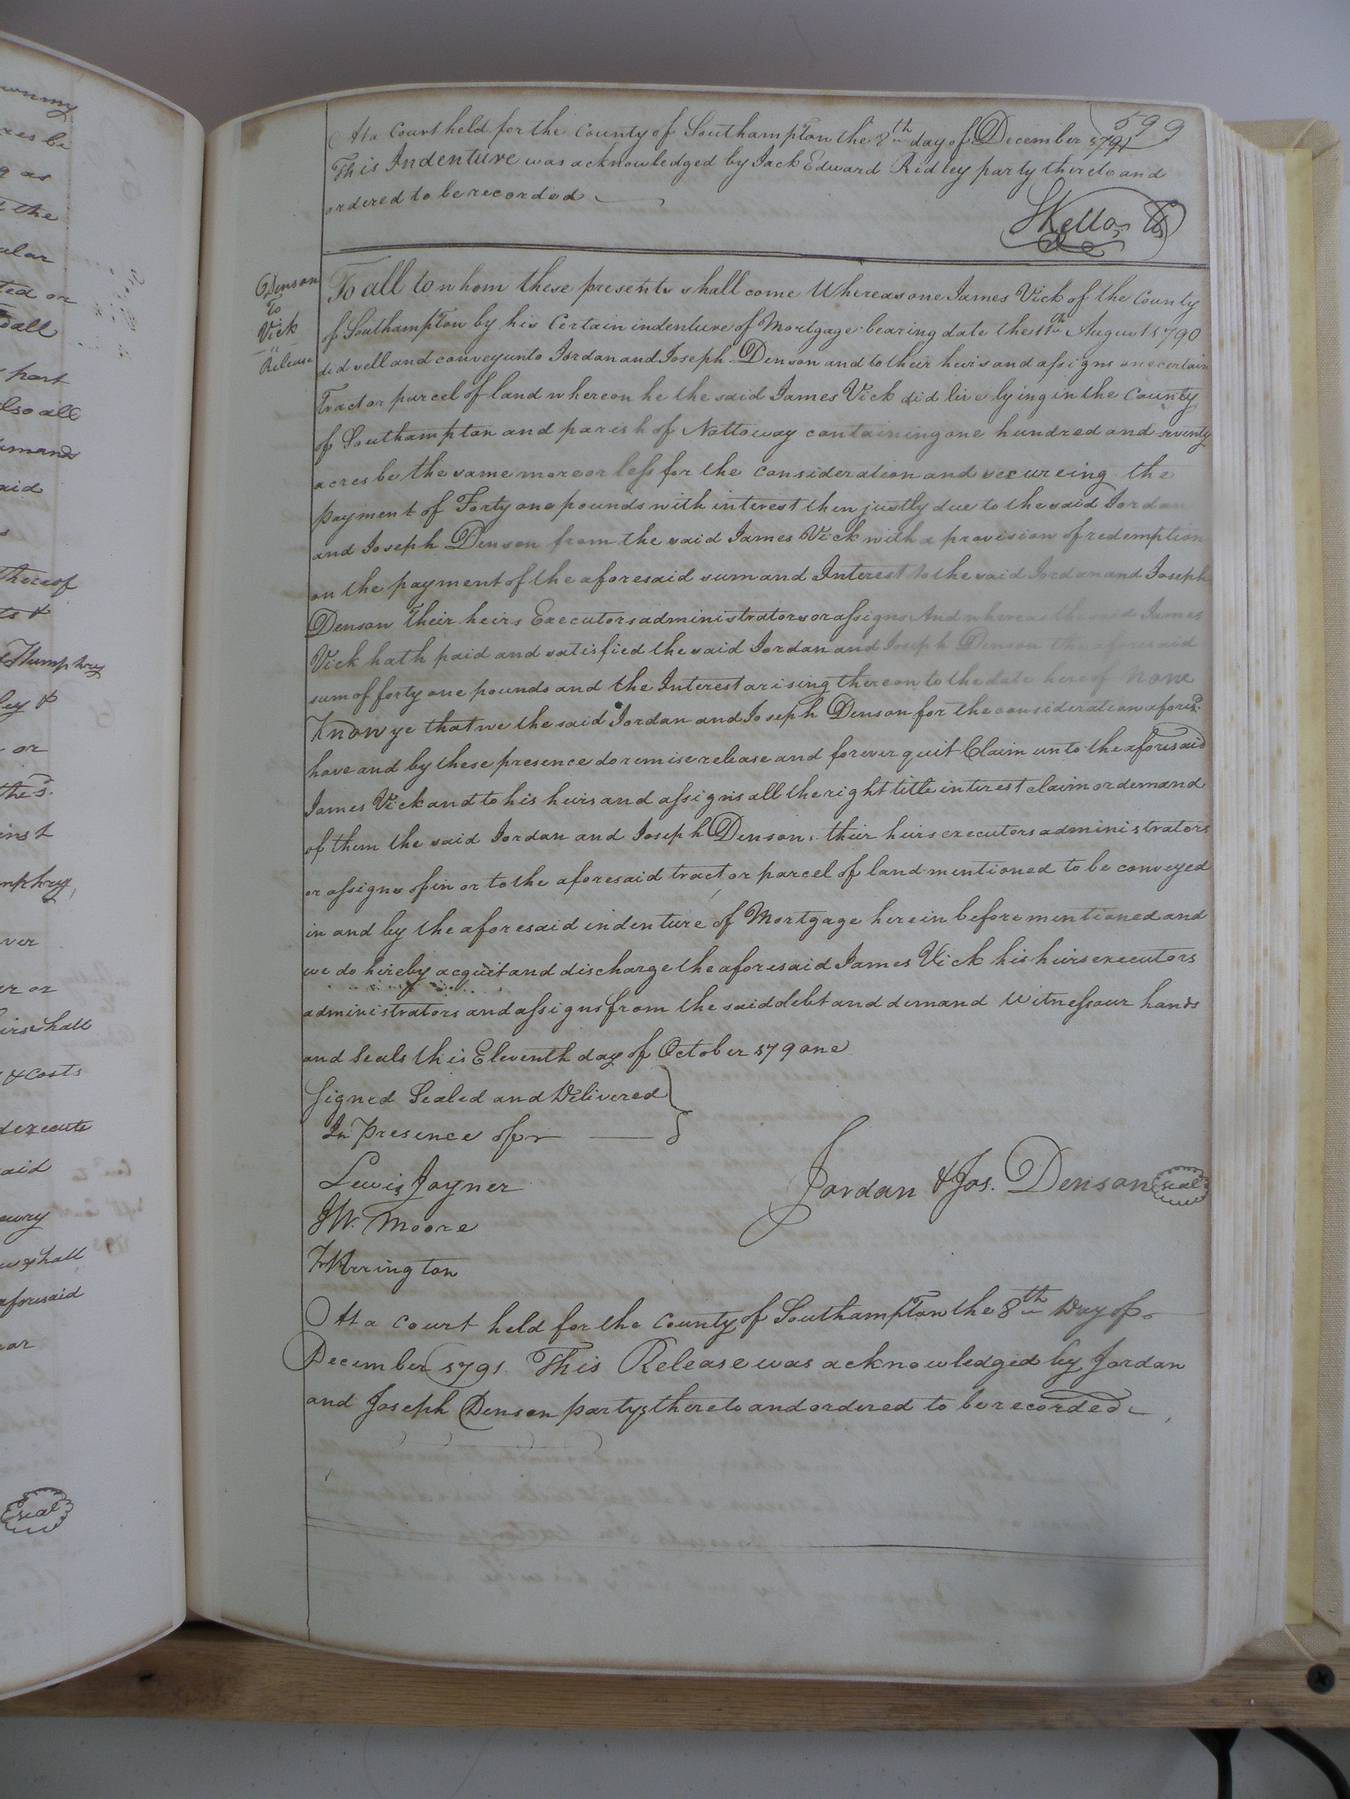 599
At a Court held for the County of Southampton the 8th day of December 1791
This Indenture was acknowledged by Jack Edward Ridley party thereto and
ordered to be recorded
Denson
To
Vick
Release
To all to whom these presents shall come Whereas one James Vick of the County
of Southampton by his Certain indenture of Mortgage bearing date the 11th August 1790
did sell and convey unto Jordan and Joseph Denson and to their heirs and assigns one certain
Tract or parcel of land whereon he the said James Vick did live lying in the County
of Southampton and parish of Nottoway containing one hundred and seventy
acres be the same more or less for the consideration and secureing the
payment of Forty one pounds with interest then justly due to the said Jordan
and Joseph Denson from the said James Vick with a provision of redemption
on the payment of the aforesaid sum and Interest to the said Jordan and Joseph
Denson their heirs Executors administrators or assigns And whereas the said James
Vick hath paid and satisfied the said Jordan and Joseph Denson the aforesaid
sum of forty one pounds and the Interest arising thereon to the date hereof Now
Know ye that we the said Jordan and Joseph Denson for the consideration afores.d
have and by these presence do remise release and forever quit Claim unto the aforesaid
James Vick and to his heirs and assigns all the right title interest claim or demand
of them the said Jordan and Joseph Denson, their heirs executors administrators
or assigns of in or to the aforesaid tract or parcel of land mentioned to be conveyed
in and by the aforesaid indenture of Mortgage herein before mentioned and
we do hereby acquit and discharge the aforesaid James Vick his heirs executors
administrators and assigns from the said debt and demand Witness our hands
and seals this Eleventh day of October 179one
Signed Sealed and Delivered
In Presence of
Lewis Joyner
JW. Moore
Arrington
Jordan & Jos. Denson seal
At a Court held for the County of Southampton the 8th Day of
December 1791 This Release was acknowledged by Jordan
and Joseph Denson partys thereto and ordered to be recorded